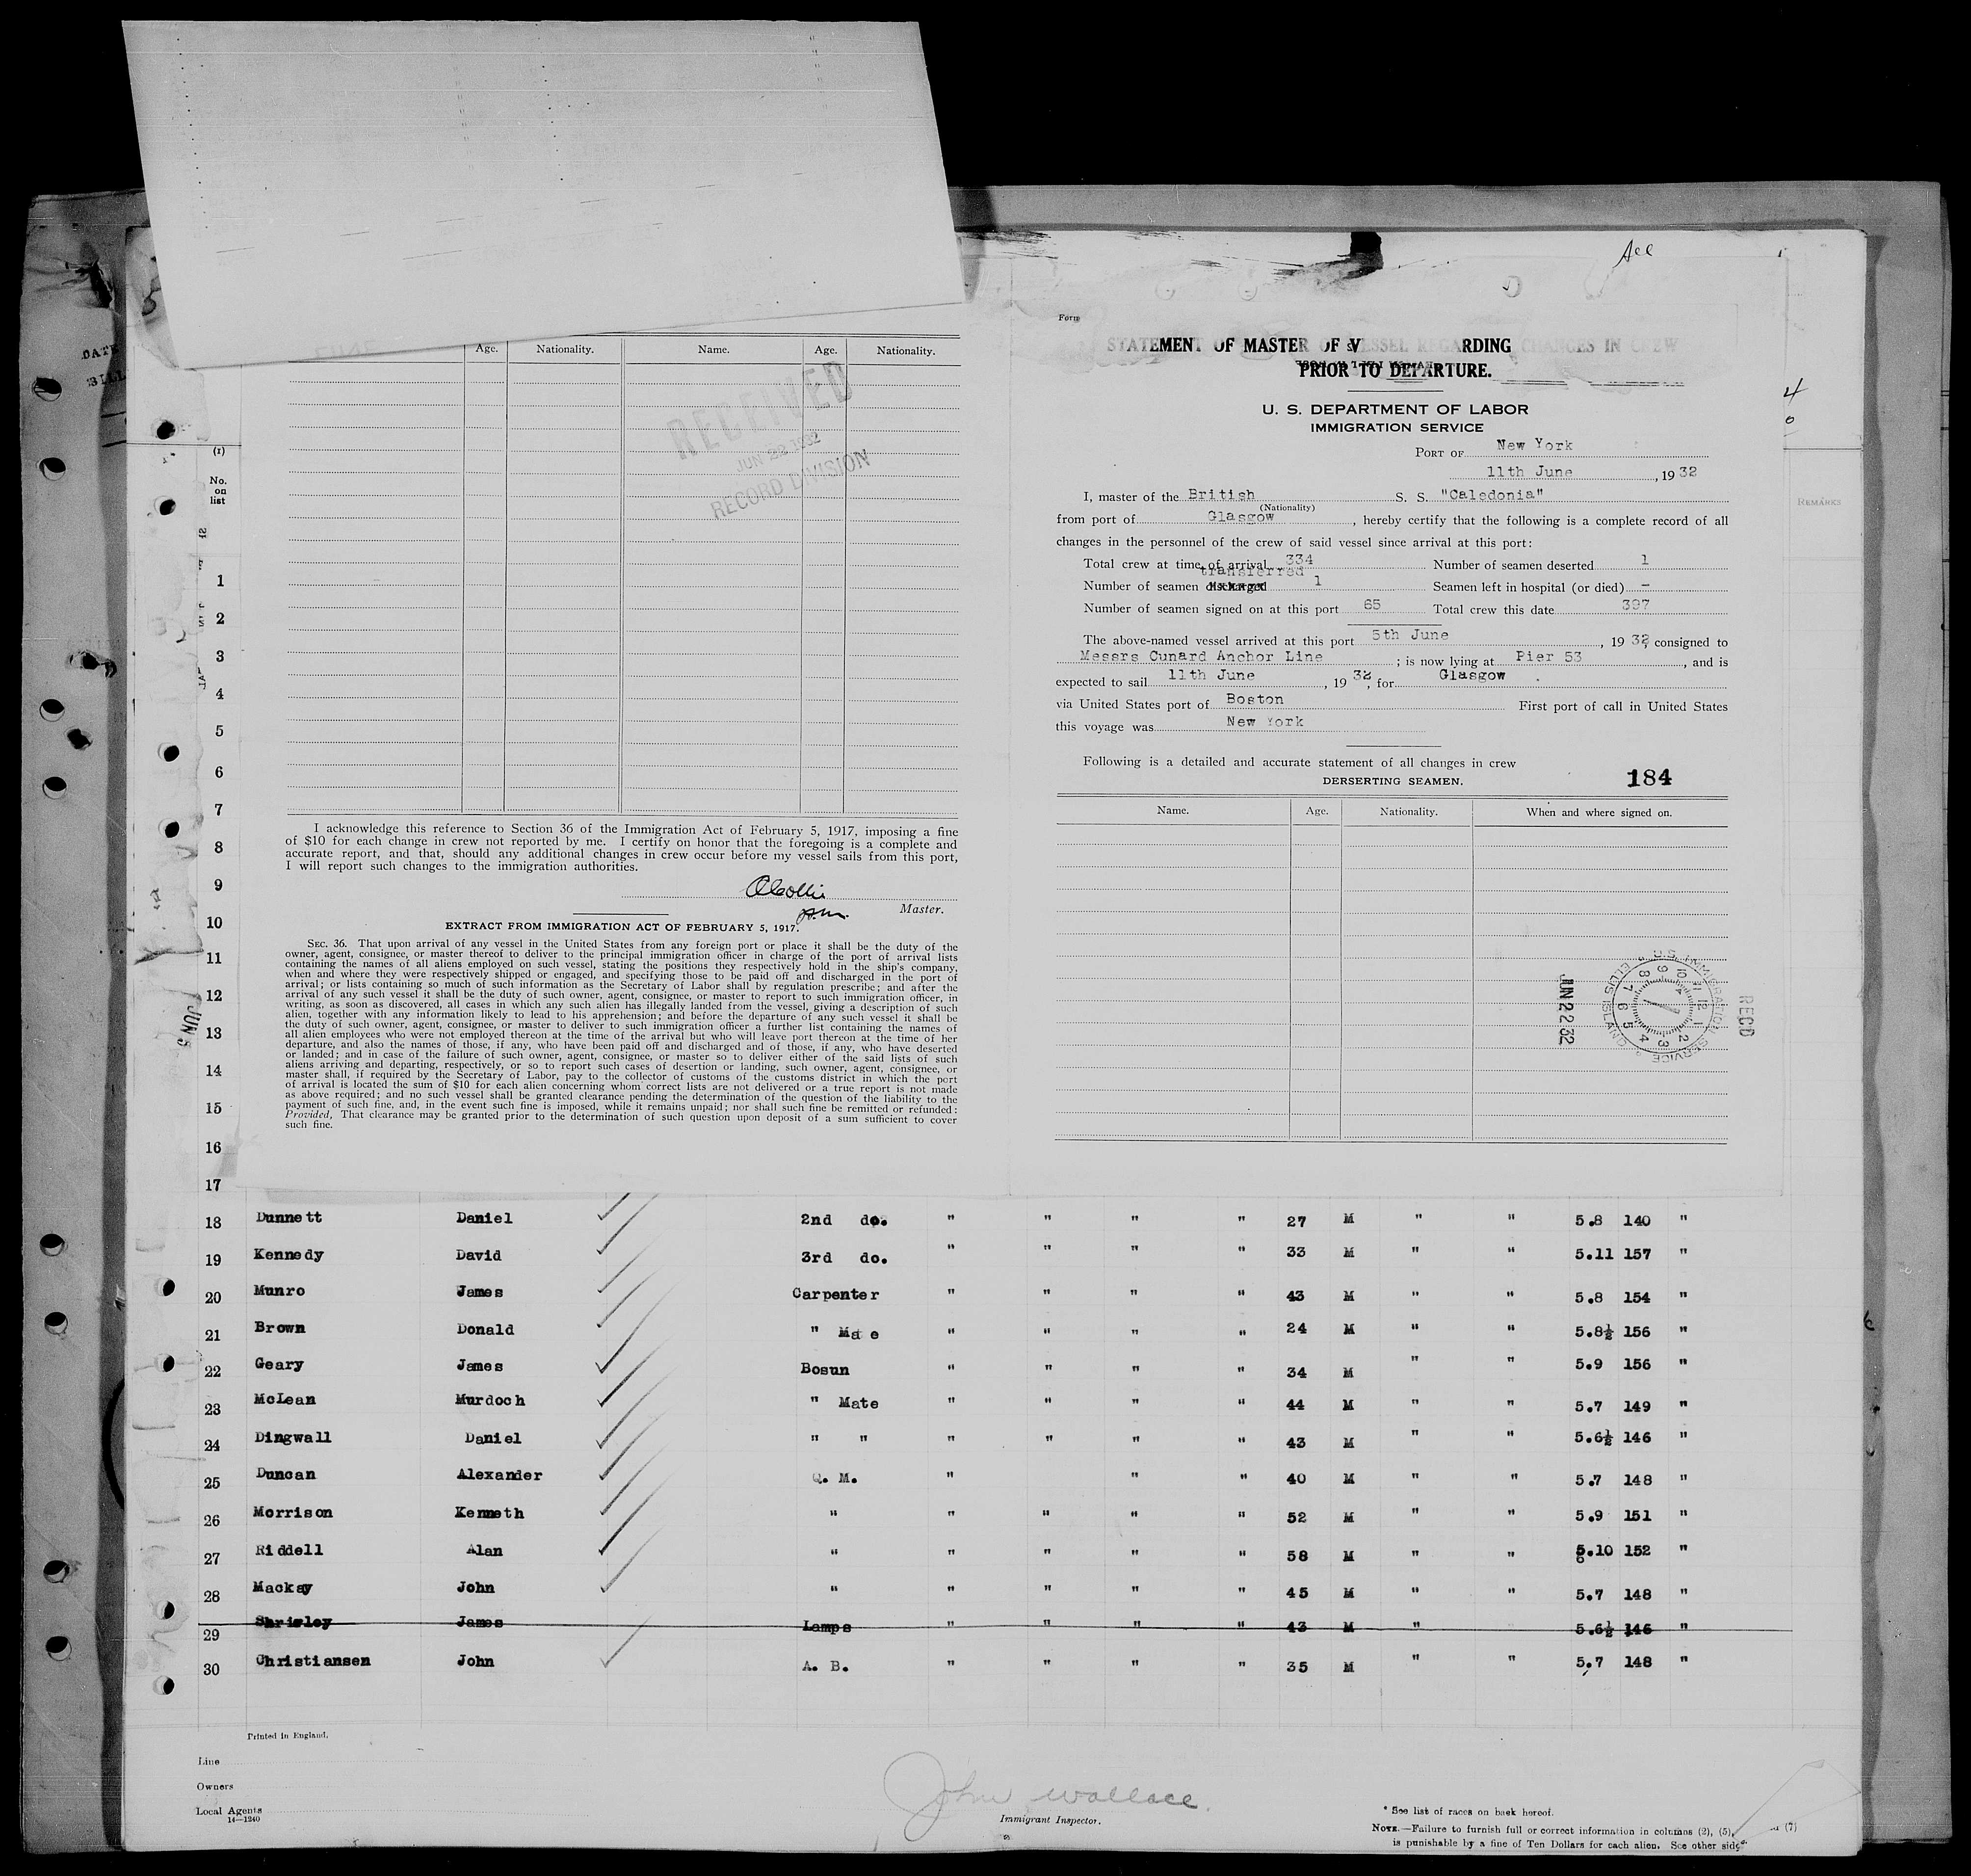 All
Form
STATEMENT OF MASTER OF VESSEL REGARDING CHANGES IN CREW
PRIOR TO DEPARTURE.
U. S. DEPARTMENT OF LABOR
IMMIGRATION SERVICE
PORT OF New York
11th June, 1932
I, master of the British S. S. "Caledonia"
(Nationality)
from port of Glasgow, hereby certify that the following is a complete record of all
changes in the personnel of the crew of said vessel since arrival at this port:
Total crew at time of arrival 334 Number of seamen deserted 1
transferred
Number of seamen discharged 1 Seamen left in hospital (or died) —
Number of seamen signed on at this port 65 Total crew this date 397
The above-named vessel arrived at this port 5th June, 1932, consigned to
Messrs Cunard Anchor Line; is now lying at Pier 53, and is
expected to sail 11th June, 1932, for Glasgow.
via United States port of Boston First port of call in United States
this voyage was New York
Following is a detailed and accurate statement of all changes in crew
DERSERTING SEAMEN. 184
Name. Age. Nationality. When and where signed on.
U.S. IMMIGRATION SERVICE ELLIS ISLAND
JUN 22 32
RECD
REMARKS
DATE
BILL
Age. Nationality. Name. Age. Nationality.
RECEIVED
JUN 23 1932
RECORD DIVISION
I acknowledge this reference to Section 36 of the Immigration Act of February 5, 1917, imposing a fine
of $10 for each change in crew not reported by me. I certify on honor that the foregoing is a complete and
accurate report, and that, should any additional changes in crew occur before my vessel sails from this port,
I will report such changes to the immigration authorities.
Master.
EXTRACT FROM IMMIGRATION ACT OF FEBRUARY 5, 1917.
SEC. 36. That upon arrival of any vessel in the United States from any foreign port or place it shall be the duty of the
owner, agent, consignee, or master thereof to deliver to the principal immigration officer in charge of the port of arrival lists
containing the names of all aliens employed on such vessel, stating the positions they respectively hold in the ship's company,
when and where they were respectively shipped or engaged, and specifying those to be paid off and discharged in the port of
arrival; or lists containing so much of such information as the Secretary of Labor shall by regulation prescribe; and after the
arrival of any such vessel it shall be the duty of such owner, agent, consignee, or master to report to such immigration officer, in
writing, as soon as discovered, all cases in which any such alien has illegally landed from the vessel, giving a description of such
alien, together with any information likely to lead to his apprehension; and before the departure of any such vessel it shall be
the duty of such owner, agent, consignee, or master to deliver to such immigration officer a further list containing the names of
all alien employees who were not employed thereon at the time of the arrival but who will leave port thereon at the time of her
departure, and also the names of those, if any, who have been paid off and discharged and of those, if any, who have deserted
or landed; and in case of the failure of such owner, agent, consignee, or master so to deliver either of the said lists of such
aliens arriving and departing, respectively, or so to report such cases of desertion or landing, such owner, agent, consignee, or
master shall, if required by the Secretary of Labor, pay to the collector of customs of the customs district in which the port
of arrival is located the sum of $10 for each alien concerning whom correct lists are not delivered or a true report is not made
as above required; and no such vessel shall be granted clearance pending the determination of the question of the liability to the
payment of such fine, and, in the event such fine is imposed, while it remains unpaid; nor shall such fine be remitted or refunded:
Provided, That clearance may be granted prior to the determination of such question upon deposit of a sum sufficient to cover
such fine.
(1)
No.
on
list
1
2
3
4
5
6
7
8
9
10
11
12
13
14
15
16
17
JUN 5
18 Dunnett Daniel 2nd do. " " " " 27 M " " 5.8 140 "
19 Kennedy David 3rd do. " " " " 33 M " " 5.11 157 "
20 Munro James Carpenter " " " " 43 M " " 5.8 154 "
21 Brown Donald " Mate " " " " 24 M " " 5.8½ 156 "
22 Geary James Bosun " " " " 34 M " " 5.9 156 "
23 McLean Murdoch " Mate " " " " 44 M " " 5.7 149 "
24 Dingwall Daniel " " " " " " 43 M " " 5.6½ 146 "
25 Duncan Alexander Q. M. " " " 40 M " " 5.7 148 "
26 Morrison Kenneth " " " " " 52 M " " 5.9 151 "
27 Riddell Alan " " " " " 58 M " " 5.10 152 "
28 Mackay John " " " " " 45 M " " 5.7 148 "
29 Shrisley James Lamps " " " " 43 M " 5.6½ 146 "
30 Christiansen John A. B. " " " " 35 M " " 5.7 148 "
Printed in England.
Line
Owners
Local Agents
14—1240
John Wallace.
Immigrant Inspector.
* See list of races on back hereof.
NOTE.—Failure to furnish full or correct information in columns (2), (5), (7)
is punishable by a fine of Ten Dollars for each alien. See other side.